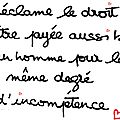 réclame le droit
être payée aussi
un homme pour le
même degré
d'incompétence